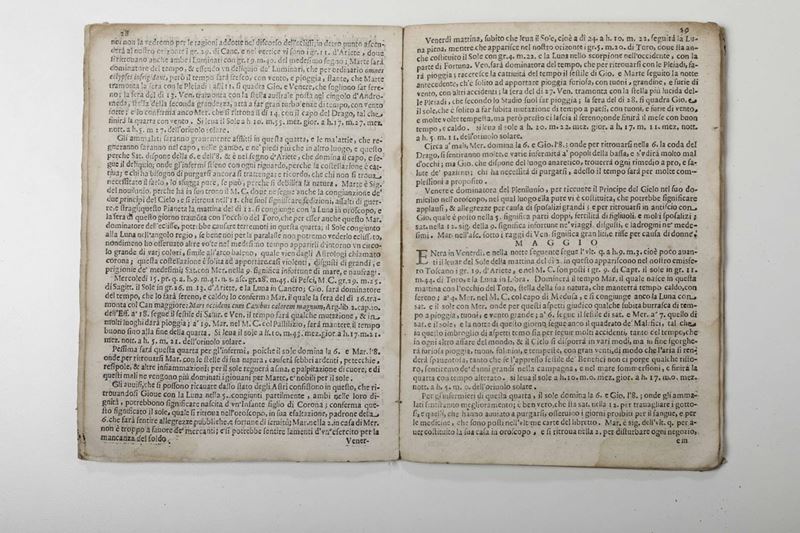 28
noi non la vedremo per le ragioni addotte nel discorso dell'eclissi, in detto punto ascen-
derà al nostro orizonte i gr. 29. di Canc. e nel vertice vi sono i gr. 11. d'Ariete, doua
si ritrouano anche i Luminari con gr. 19. m. 40. del medesimo segno; Marte sarà
dominatore del tempo, & essendo vn deliquio de' Luminari, che per ordinario omnes
eclypses infrigidant, però il tempo sarà fresco, con vento, e pioggia, stante, che Marte
tramonta la sera con le Pleiadi: alli 12. si quadra Gio. e Venere, che sogliono far sere-
no; la sera del dì 13. Ven. tramonta con la stella australe posta nel cingolo d'Andro-
meda, stella della seconda grandezza, atta a far gran turbolenze di tempo, con vento
forte; e lo conferma anco Mer. che si ritroua dì 14. con il capo del Drago, tal che
finirà la quarta con vento. Si leua il Sole a h. 10. m. 53. mez. gior. a h. 17. m. 27. mez.
nott. a h. 5. m 27. dell'oriuolo solare.
Gli ammalati saranno grauemente afflitti in questa quarta, e le ma'attie, che re-
gneranno saranno nel capo, nelle gambe, e ne' piedi più che in altro luogo, e questo
perche Sat. dispone della 6. e dell'8. & è nel segno d'Ariete, che domina il capo, e se-
gue il deliquio; onde gl'infermi stieno con ogni riguardo, perche la costellazione è cat-
tiua; e chi ha bisogno di purgarsi ancora si trattenga: e ricordo, che chi non si troua
necessitato il farlo, lo sfugga pure, se può, perche si debilita la natura. Marte è Sig.
del nouilunio, perche ha in suo trono il M. C. doue ne segue anche la congiunzione de'
due principi del Cielo, e si ritroua nell'11. che suol significare sedizioni, assalti di guer-
re, e stragi; questo Pianeta la mattina del dì 12. si congiunge con la Luna in oroscopo, e
la sera di questo giorno tramonta con l'occhio del Toro, che per esser anche questo Mar.
dominatore dell'eclisse, potrebbe causare terremoti in questa quarta; il Sole congiunto
alla Luna nell'angolo regio, se bene noi per la paralasse non potremo vederlo eclissato,
nondimeno ho osseruato altre volte nel medesimo tempo apparirli d'intorno vn circo-
lo grande di varj colori, simile all'arco baleno, quale vien dagli Astrologi chiamato
corona; questa costellazione è solita ad apportare casi violenti, disgusti di grandi, e
prigionie de' medesimi: Sat. con Mer. nella 9. significa infortune di mare, e naufragi.
Mercoledì 15. pr. q. a h. 3. m. 2. s. asc. gr. 28. m. 45. di Pesci, M. C. gr. 29. m. 25.
di Sagit. il Sole in gr. 26. m. 13. d'Ariete, e la Luna in Cancro; Gio. sarà dominatore
del tempo, che lo farà sereno, e caldo; lo conferma Mar. il quale la sera del dì 16. tra-
monta col Can maggiore: Mars occidens cum Canibus calorem magnum, Arg. lib. 2. cap. 10.
dell'Eff. a' 18. segue il sestile di Satur. e Ven. il tempo farà qualche mutazione, & in
molti luoghi darà pioggia; a' 19. Mar. nel M. C. col Pallilizio, farà mantere il tempo
buono sino alla fine della quarta. Si leua il sole a h. 10. m. 45. mez. gior. a h. 17. m 21.
mez. nott. a h. 5. m. 21. dell'oriuolo solare.
Pessima sarà questa quarta per gl'infermi, poiche il sole domina la 6. e Mar. l'8.
onde per ritrouarsi Mar. con le stelle di sua natura, causerà febbri ardenti, petecchie,
resipole, & altre infiammazioni: per il sole regnerà asma, e palpitazione di cuore, e di
questi mali ne vengono più dominati i giouani per Marte, e' nobili per il sole.
Gli auuisi, che si possono ricauare dallo stato degli Astri consistono in questo, che ri-
trouandosi Gioue con la Luna nella 5. congiunti partilmente, ambi nelle loro di-
gnità, potrebbono significare nascita d'vn'infante figlio di Corona; conferma que-
sto significato il sole, quale si ritroua nell'oroscopo, in sua esaltazione, padrone della
6. che farà sentire allegrezze pubbliche, e fortune di seruitù; Mar. nella 2. in casa di Mer.
non è troppo a fauore de' mercanti; e si potrebbe sentire lamenti d'vn'esercito per la
mancanza del soldo.
Vener-
29
Venerdì mattina, subito che leua il Sole, cioè a dì 24. a h. 10. m. 22. seguirà la Lu-
na piena, mentre che apparisce nel nostro orizonte i gr. 5. m. 20. di Toro, doue sta an-
che costituito il Sole con gr. 4. m. 22. e la Luna nello scorpione nell'occidente, con la
parte di Fortuna. Ven. sarà dominatore del tempo, che per ritrouarsi con le Pleiadi, fa-
rà pioggia; raccresce la cattiuità del tempo il sestile di Gio. e Marte seguito la notte
antecedente, ch'è solito ad apportare pioggia furiosa, con tuoni, grandine, e furie di
vento, con altri accidenti; la sera del dì 27. Ven. tramonta con la stella più lucida del-
le Pleiadi, che secondo lo Stadio suol far pioggia; la sera del dì 28. si quadra Gio. e
il sole, che è solito a far subita mutazione di tempo a paesi, con tuoni, e furie di vento,
e molte volte tempesta, ma però presto ci lascia il sereno; onde finirà il mese con buon
tempo, e caldo. Si leua il sole a h. 10. m. 22. mez. gior. a h. 17. m. 11. mez. nott.
a h. 5. m 11. dell'oriuolo solare.
Circa a' mali, Mer. domina la 6. e Gio. l'8.; onde per ritrouarsi nella 6. la coda del
Drago, si sentiranno molte, e varie infermità a' popoli della bassa, e s'vdirà molto mal
d'occhi; ma Gio. che dispone del luogo anaretico, trouerrà ad ogni rimedio apro, e sa-
lute de' pazienti; chi ha necessità di purgarsi, adesso il tempo sarà per molte com-
plessioni a proposito.
Venere è dominatore del Plenilunio, per riceuere il Principe del Cielo nel suo do-
micilio nell'oroscopo, nel qual luogo ella pure vi è costituita, che potrebbe significare
applausi, & allegrezze per causa di sponsali grandi; e per ritrouarsi in antiscio con
Gio. quale è posto nella 5. significa parti doppi, fertilità di figliuoli, e molti sposalizj;
sat. nella 12. sig. della 9. significa infortune ne' viaggi, disgusti, e ladrogni ne' mede-
simi. Mar. nell'asc. sotto i raggi di Ven. significa gran liti, e risse per causa di donne.
MAGGIO
ENtera in Venerdì, e nella notte seguente segue l'vlt. q. a h. 9. m. 3. cioè poco auan-
ti il leuar del Sole della mattina del dì 2. in questo appariscono nel nostro emisse-
ro Toscano i gr. 19. d'Ariete, e nel M. C. son posti i gr. 9. di Capr. il sole in gr. 11.
m. 44. di Toro, e la Luna in Libra. Dominerà il tempo Mar. il quale nasce in questa
mattina con l'occhio del Toro, stella della sua natura, che manterrà tempo caldo, con
sereno; a' 4. Mer. nel M. C. col capo di Medusa, e si congiunge anco la Luna con
sat. e il sole con Mer. onde per questi aspetti giudico qualche subita burrasca di tem-
po a pioggia, tuoni, e vento grande; a' 6. segue il sestile di sat. e Mer. a' 7. quello di
sat. e il sole, e la notte di questo giorno seguiranno il quadrato de' Malefici, tal che
in questo imbroglio di aspetti temo sia per seguir molti accidenti, tanto del tempo, che
in ogni altro affare del mondo, & il Cielo si disporrà in vari modi, ma in fine sgorghe-
rà furiosa pioggia, tuoni, fulmini, e tempeste, con gran venti, di modo che l'aria si ren-
derà spauentosa, tanto che se l'appresso sestile de' Benefici non ci porge qualche risto-
ro, sentiremo de' danni grandi nella campagna, e nel mare sommersioni, e finirà la
quarta con tempo alterato. si leua il sole a h. 10. m. 0. mez. gior. a h. 17. m. 0. mez.
nott. a h. 5. m. 0. dell'oriuolo solare.
Per gl'infermi di questa quarta, il sole domina la 6. e Gio. l'8.; onde gli amma-
lati sentiranno miglioramento; è ben vero, che sta sat. nella 12. per trauagliare i gotto-
si, e quelli, che hanno auuto a purgarsi, osseruino i giorni proprij per il sangue, e per
le medicine, che sono posti nell'vltime carte del libretto. Mar. è sig. dell'vlt. q. per a-
uer costituito la sua casa in oroscopo, e si ritroua nella 2. per disturbare ogni negozio,
e in